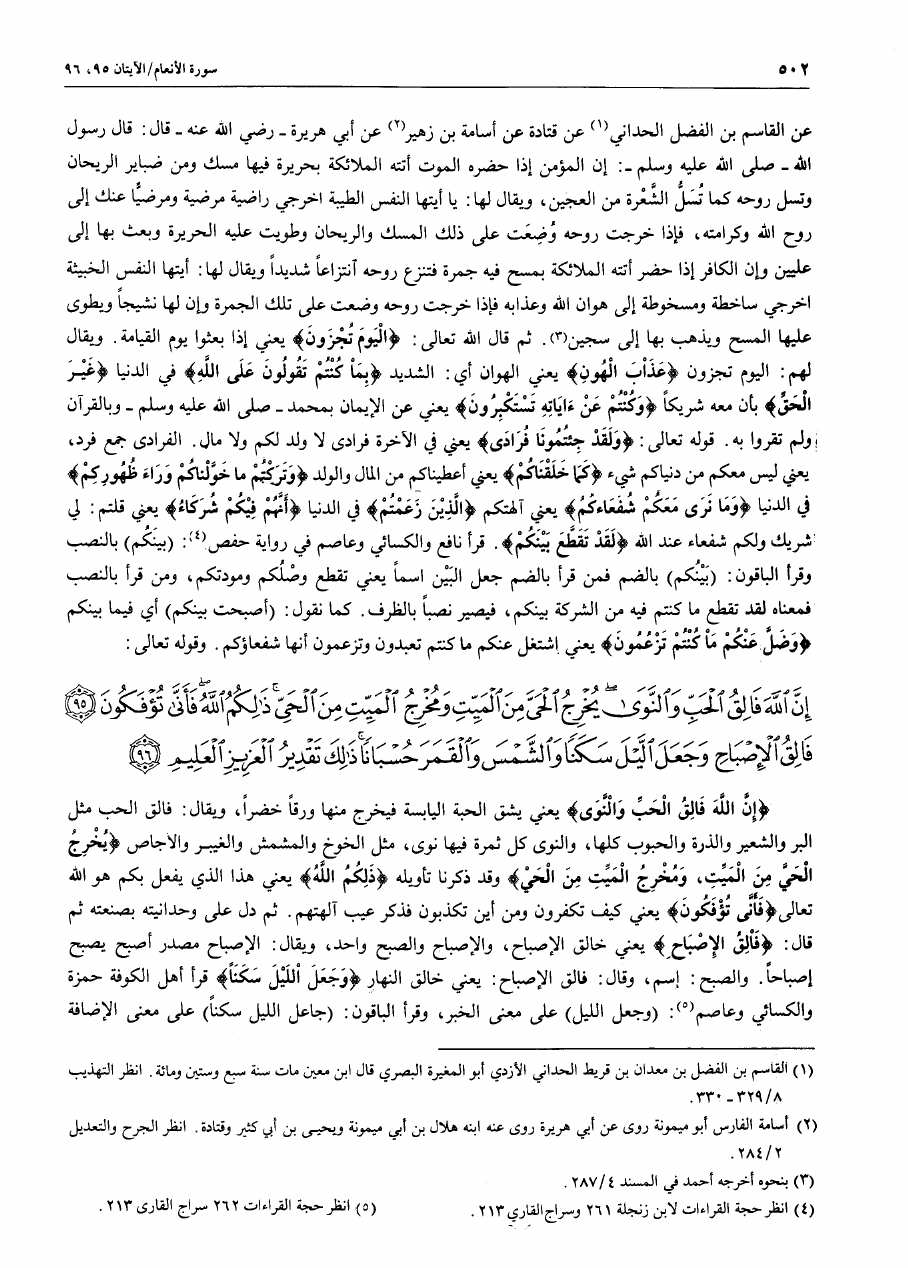 ٥٠٢
سورة الأنعام/الآيتان ٩٥، ٩٦
عن القاسم بن الفضل الحداني(١) عن قتادة عن أسامة بن زهير(٢) عن أبي هريرة ـ رضي الله عنه ـ قال: قال رسول
الله ـ صلى الله عليه وسلم ـ: إن المؤمن إذا حضره الموت أتته الملائكة بحريرة فيها مسك ومن ضباير الريحان
وتسل روحه كما تُسَلُّ الشَّعْرة من العجين، ويقال لها: يا أيتها النفس الطيبة اخرجي راضية مرضية ومرضيًّا عنك إلى
روح الله وكرامته، فإذا خرجت روحه وُضِعَت على ذلك المسك والريحان وطويت عليه الحريرة وبعث بها إلى
عليين وإن الكافر إذا حضر أتته الملائكة بمسح فيه جمرة فتنزع روحه آنتزاعاً شديداً ويقال لها: أيتها النفس الخبيثة
اخرجي ساخطة ومسخوطة إلى هوان الله وعذابه فإذا خرجت روحه وضعت على تلك الجمرة وإن لها نشيجاً ويطوى
عليها المسح ويذهب بها إلى سجين(٣). ثم قال الله تعالى: ﴿الْيَومَ تُجْزَونَ﴾ يعني إذا بعثوا يوم القيامة. ويقال
لهم: اليوم تجزون ﴿عَذَابَ الْهُونِ﴾ يعني الهوان أي: الشديد ﴿بِمَا كُنْتُمْ تَقُولُونَ عَلَى اللَّهِ﴾ في الدنيا ﴿غَيْرَ
الْحَقِّ﴾ بأن معه شريكاً ﴿وَكُنْتُمْ عَنْ ءَايَاتِهِ تَسْتَكْبِرُونَ﴾ يعني عن الإيمان بمحمد ـ صلى الله عليه وسلم ـ وبالقرآن
ولم تقروا به. قوله تعالى: ﴿وَلَقَدْ جِئْتُمُونَا فُرَادَى﴾ يعني في الآخرة فرادى لا ولد لكم ولا مال. الفرادى جمع فرد،
يعني ليس معكم من دنياكم شيء ﴿كَمَا خَلَقْنَاكُمْ﴾ يعني أعطيناكم من المال والولد ﴿وَتَرَكْتُمْ ما خَوَّلْنَاكُمْ وَرَاءَ ظُهُورِكِمْ﴾
في الدنيا ﴿وَمَا نَرَى مَعَكُمْ شُفَعَاءكُمُ﴾ يعني آلهتكم ﴿الَّذِيْنَ زَعَمْتُمْ﴾ في الدنيا ﴿أَنَّهُمْ فِيْكُمْ شُرَكَاءُ﴾ يعني قلتم: لي
شريك ولكم شفعاء عند الله ﴿لَقَدْ تَقَطَّعَ بَيْنَكُمْ﴾. قرأ نافع والكسائي وعاصم في رواية حفص(٤): (بينَكُم) بالنصب
وقرأ الباقون: (بَيْنُكم) بالضم فمن قرأ بالضم جعل البَيْن اسماً يعني تقطع وصْلُكم ومودتكم، ومن قرأ بالنصب
فمعناه لقد تقطع ما كنتم فيه من الشركة بينكم، فيصير نصباً بالظرف. كما نقول: (أصبحت بينكم) أي فيما بينكم
﴿وَضَلَّ عَنْكُمْ مَا كُنْتُمْ تَزْعُمُونَ﴾ يعني إشتغل عنكم ما كنتم تعبدون وتزعمون أنها شفعاؤكم. وقوله تعالى:
إِنَّ ٱللَّهَ فَالِقُ ٱلْحَبِّ وَٱلنَّوَىٰ يُخْرِجُ ٱلْحَىَّ مِنَ ٱلْمَيِّتِ وَمُخْرِجُ ٱلْمَيِّتِ مِنَ ٱلْحَىِّ ذَٰلِكُمُ ٱللَّهُ فَأَنَّىٰ تُؤْفَكُونَ ﴿٩٥﴾
فَالِقُ ٱلْإِصْبَاحِ وَجَعَلَ ٱلَّيْلَ سَكَنًا وَٱلشَّمْسَ وَٱلْقَمَرَ حُسْبَانًا ذَٰلِكَ تَقْدِيرُ ٱلْعَزِيزِ ٱلْعَلِيمِ ﴿٩٦﴾
﴿إِنَّ اللَّهَ فَالِقُ الْحَبِّ وَالْنَّوَى﴾ يعني يشق الحبة اليابسة فيخرج منها ورقاً خضراً، ويقال: فالق الحب مثل
البر والشعير والذرة والحبوب كلها، والنوى كل ثمرة فيها نوى، مثل الخوخ والمشمش والغبير والأجاص ﴿يُخْرِجُ
الْحَيَّ مِنَ الْمَيِّتِ، وَمُخْرِجُ الْمَيِّتِ مِنَ الْحَيِّ﴾ وقد ذكرنا تأويله ﴿ذَلِكُمُ اللَّهُ﴾ يعني هذا الذي يفعل بكم هو الله
تعالى ﴿فَأَنَّى تُؤْفَكُونَ﴾ يعني كيف تكفرون ومن أين تكذبون فذكر عيب آلهتهم. ثم دل على وحدانيته بصنعته ثم
قال: ﴿فَالِقُ الإِصْبَاحِ﴾ يعني خالق الإصباح، والإصباح والصبح واحد، ويقال: الإصباح مصدر أصبح يصبح
إصباحاً. والصبح: إسم، وقال: فالق الإصباح: يعني خالق النهار ﴿وَجَعَلَ اللَّيْلَ سَكَنَاً﴾ قرأ أهل الكوفة حمزة
والكسائي وعاصم(٥): (وجعل الليل) على معنى الخبر، وقرأ الباقون: (جاعل الليل سكناً) على معنى الإضافة
(١) القاسم بن الفضل بن معدان بن قريط الحداني الأزدي أبو المغيرة البصري قال ابن معين مات سنة سبع وستين ومائة. انظر التهذيب
٨/ ٣٢٩ ـ ٣٣٠.
(٢) أسامة الفارس أبو ميمونة روى عن أبي هريرة روى عنه ابنه هلال بن أبي ميمونة ويحيى بن أبي كثير وقتادة. انظر الجرح والتعديل
٢/ ٢٨٤.
(٣) بنحوه أخرجه أحمد في المسند ٤/ ٢٨٧.
(٤) انظر حجة القراءات لابن زنجلة ٢٦١ وسراج القاري ٢١٣.
(٥) انظر حجة القراءات ٢٦٢ سراج القارى ٢١٣.